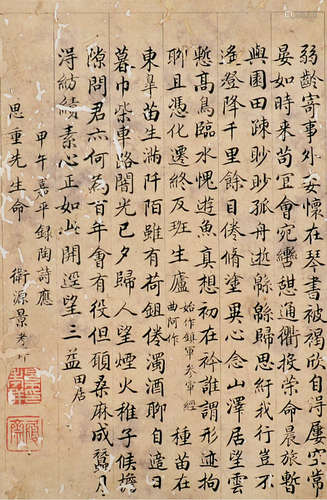 弱齡寄事外委懷在琴書被褐欣自得屢空常
晏如時来苟冥會宛轡憇通衢投策命晨旅暫
與園田疎眇眇孤舟逝緜緜歸思紆我行豈不
遙登降千里餘目倦脩塗異心念山澤居望雲
慙高鳥臨水愧遊魚真想初在衿誰謂形迹拘
聊且憑化遷終反班生廬 始作鎮軍參軍經曲阿作 種苗在
東皋苗生滿阡陌雖有荷鉏倦濁酒聊自適日
暮巾柴車路闇光已夕歸人望煙火稚子候檐
隙問君亦何為百年會有役但願桑麻成蠶月
得紡績素心正如此開逕望三益 田居
甲午嘉平錄陶詩應
思重先生命 衛源景考